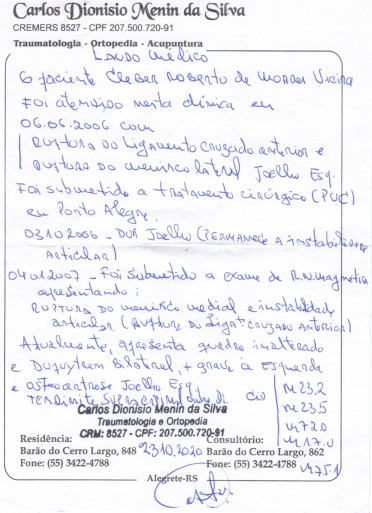 Carlos Dionisio Menin da Silva
CREMERS 8527 - CPF 207.500.720-91
Traumatologia - Ortopedia - Acupuntura
Laudo médico
O paciente Cleber Roberto de Moraes Vieira
Foi atendido nesta clínica em
06.06.2006 com
Ruptura do ligamento cruzado anterior e
Ruptura do menisco lateral Joelho Esq.
Foi submetido a tratamento cirúrgico (PUC)
em Porto Alegre.
03102006 - DUR Joelho (Permanece a instabilidade
articular)
04012007 - Foi submetido a exame de R.N.Magnetica
apresentando:
Ruptura do menisco medial e instabilidade
articular (Ruptura do Ligto cruzado Anterior)
Atualmente, apresenta quadro inalterado
e Dupuytren Bilateral, + grave à Esquerda
e osteoartrose Joelho Esq. CID M23.2
Tendinite Supraespinhal ombro D. M23.5
Carlos Dionísio Menin da Silva
Traumatologia e Ortopedia M72.0
CRM: 8527 - CPF: 207.500.720-91 M17.0
Residência: Consultório:
Barão do Cerro Largo, 848 23.10.2020 Barão do Cerro Largo, 862
Fone: (55) 3422-4788 Fone: (55) 3422-4788 M75.1
Alegrete-RS